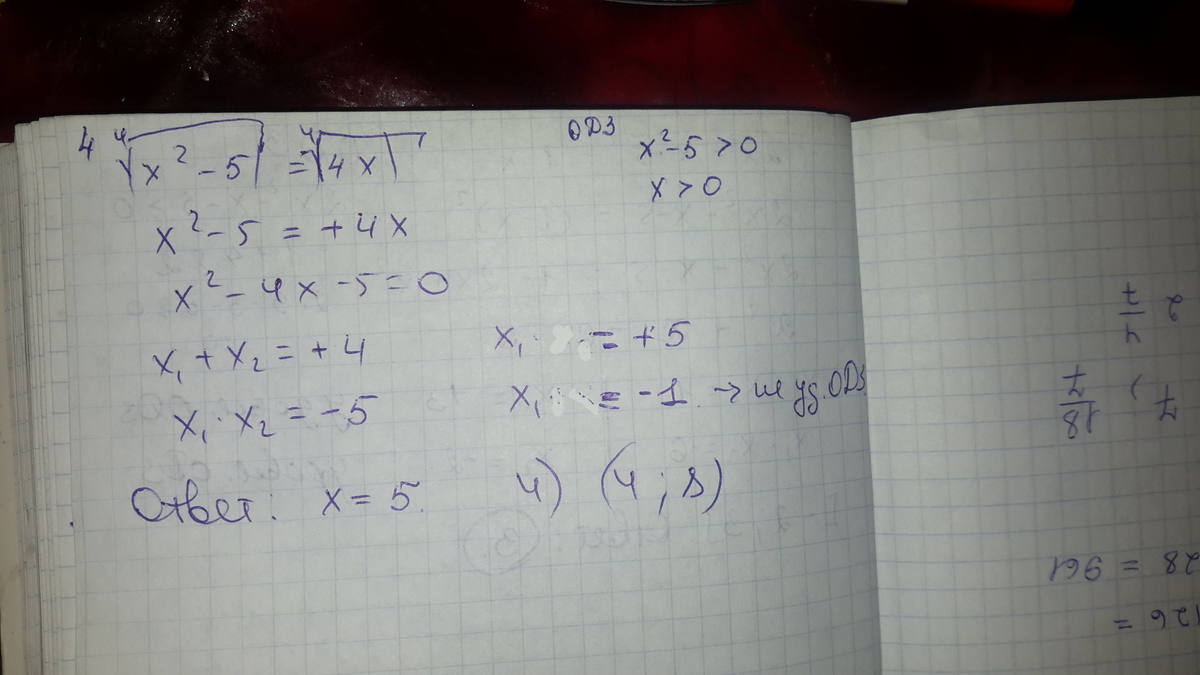 4 ⁴√x² - 5 = ⁴√4x
ОДЗ x² - 5 > 0
x > 0
x² - 5 = + 4x
x² - 4x - 5 = 0
x₁ + x₂ = + 4
x₁ · x₂ = -5
x₁ = + 5
x₁ = -1 → не уд. ОДЗ
Ответ: x = 5.
4) (4 ; 8)
2 4/7
7, 18/7
28 = 961
126 =